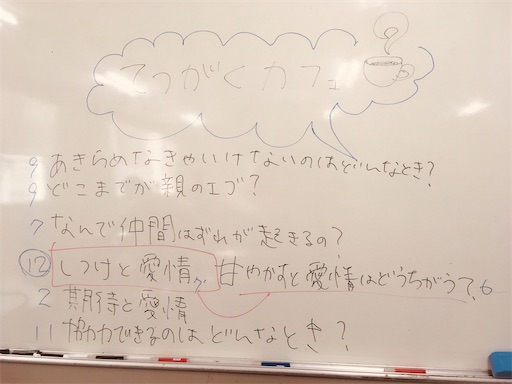 てつがくカフェ
?
9 あきらめなきゃいけないのはどんなとき?
9 どこまでが親のエゴ?
7 なんで仲間はずれが起きるの?
12 しつけと愛情 7 甘やかすと愛情はどうちがう? 6
2 期待と愛情
11 協力できるのはどんなとき?